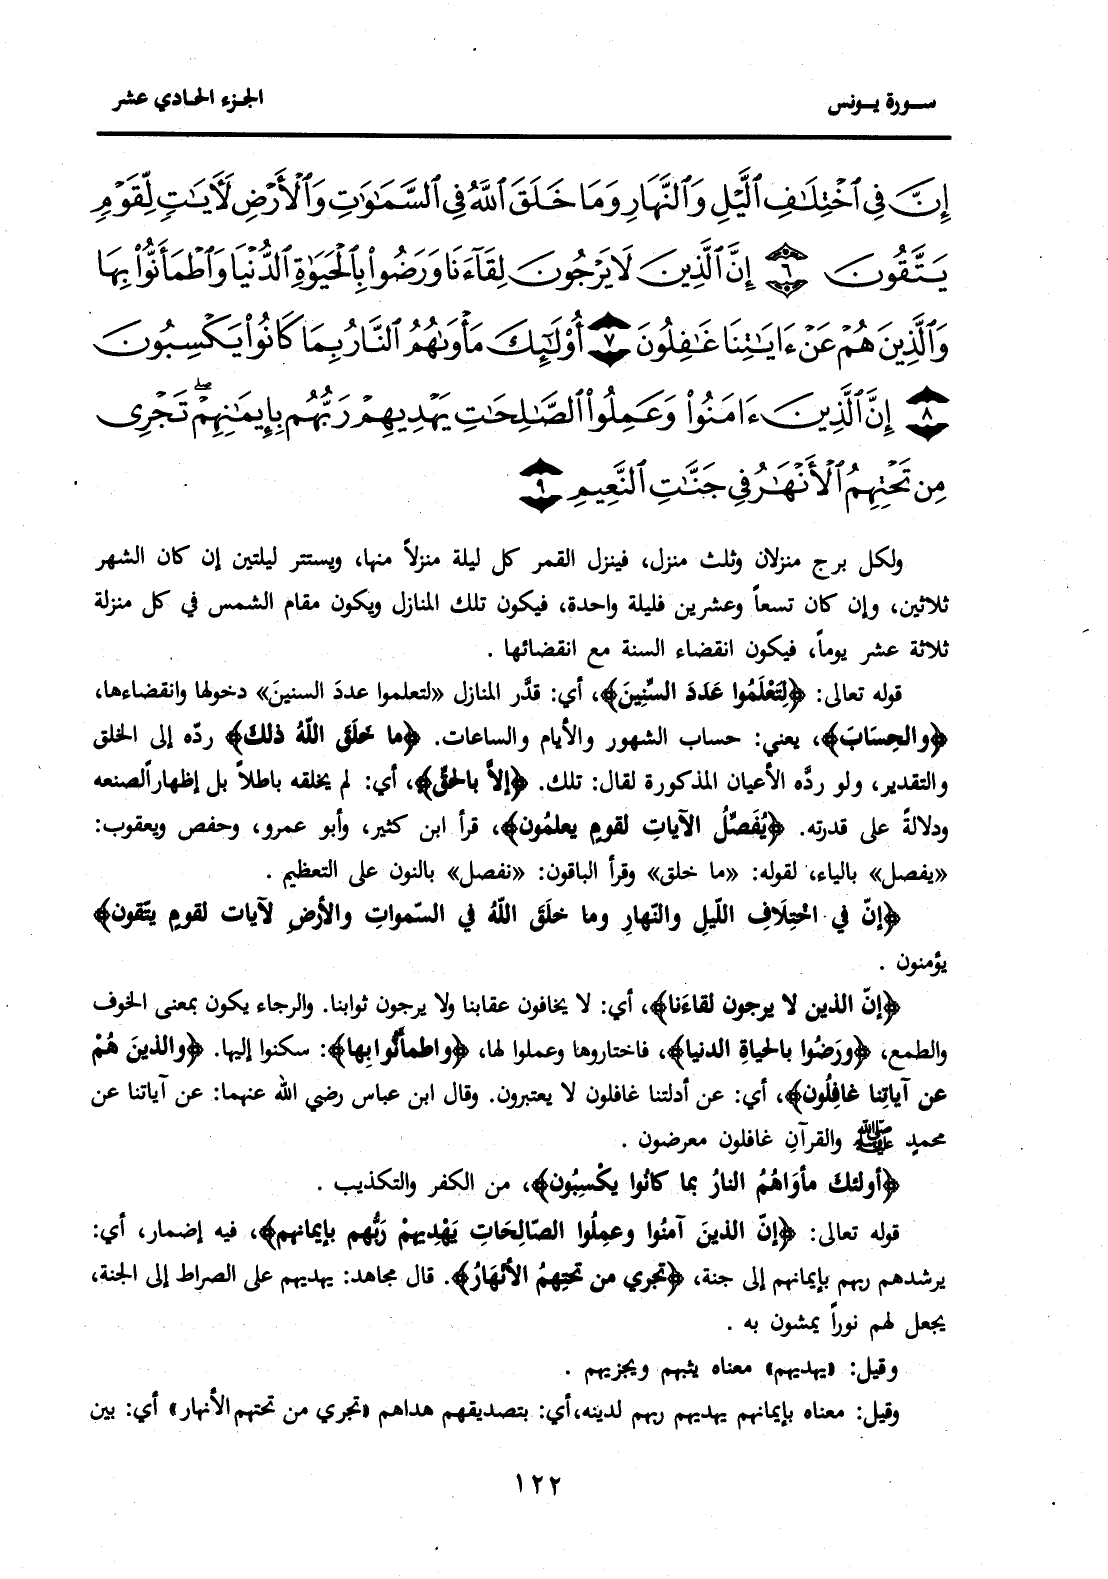 سورة يونس
الجزء الحادي عشر
إِنَّ فِي ٱخْتِلَٰفِ ٱلَّيْلِ وَٱلنَّهَارِ وَمَا خَلَقَ ٱللَّهُ فِي ٱلسَّمَٰوَٰتِ وَٱلْأَرْضِ لَأٓيَٰتٍ لِّقَوْمٍ
يَتَّقُونَ ٦ إِنَّ ٱلَّذِينَ لَا يَرْجُونَ لِقَآءَنَا وَرَضُوا۟ بِٱلْحَيَوٰةِ ٱلدُّنْيَا وَٱطْمَأَنُّوا۟ بِهَا
وَٱلَّذِينَ هُمْ عَنْ ءَايَٰتِنَا غَٰفِلُونَ ٧ أُو۟لَٰٓئِكَ مَأْوَىٰهُمُ ٱلنَّارُ بِمَا كَانُوا۟ يَكْسِبُونَ
٨ إِنَّ ٱلَّذِينَ ءَامَنُوا۟ وَعَمِلُوا۟ ٱلصَّٰلِحَٰتِ يَهْدِيهِمْ رَبُّهُم بِإِيمَٰنِهِمْ ۖ تَجْرِى
مِن تَحْتِهِمُ ٱلْأَنْهَٰرُ فِي جَنَّٰتِ ٱلنَّعِيمِ ٩
ولكل برج منزلان وثلث منزل، فينزل القمر كل ليلة منزلاً منها، ويستتر ليلتين إن كان الشهر
ثلاثين، وإن كان تسعاً وعشرين فليلة واحدة، فيكون تلك المنازل ويكون مقام الشمس في كل منزلة
ثلاثة عشر يوماً، فيكون انقضاء السنة مع انقضائها .
قوله تعالى: ﴿لِتَعْلَمُوا عَدَدَ السِّنِينَ﴾، أي: قدَّر المنازل «لتعلموا عددَ السنينَ» دخولها وانقضاءها،
﴿والحِسَابَ﴾، يعني: حساب الشهور والأيام والساعات. ﴿ما خَلَقَ اللّهُ ذلكَ﴾ ردّه إلى الخلق
والتقدير، ولو ردَّه الأعيان المذكورة لقال: تلك. ﴿إلاَّ بالحَقِّ﴾، أي: لم يخلقه باطلاً بل إظهاراً لصنعه
ودلالةً على قدرته. ﴿يُفَصِّلُ الآياتِ لقومٍ يعلمُون﴾، قرأ ابن كثير، وأبو عمرو، وحفص ويعقوب:
«يفصل» بالياء، لقوله: «ما خلق» وقرأ الباقون: «نفصل» بالنون على التعظيم .
﴿إنّ في اخْتِلَافِ اللّيلِ والنّهارِ وما خلَقَ اللّهُ في السّمواتِ والأرضِ لآيات لقومٍ يتّقون﴾
يؤمنون .
﴿إنّ الذين لا يرجون لقاءَنا﴾، أي: لا يخافون عقابنا ولا يرجون ثوابنا. والرجاء يكون بمعنى الخوف
والطمع، ﴿ورَضُوا بالحياةِ الدنيا﴾، فاختاروها وعملوا لها، ﴿واطمأنُّوا بِها﴾: سكنوا إليها. ﴿والذينَ هُمْ
عن آياتِنا غافِلُون﴾، أي: عن أدلتنا غافلون لا يعتبرون. وقال ابن عباس رضي الله عنهما: عن آياتنا عن
محمدٍ ﷺ والقرآنِ غافلون معرضون .
﴿أولئكَ مأوَاهُمُ النارُ بما كانُوا يكْسِبُون﴾، من الكفر والتكذيب .
قوله تعالى: ﴿إنّ الذينَ آمنُوا وعمِلُوا الصّالِحَاتِ يَهْدِيهمْ رَبُّهم بإيمانهم﴾، فيه إضمار، أي:
يرشدهم ربهم بإيمانهم إلى جنة، ﴿تجري من تحتِهمُ الأنْهارُ﴾. قال مجاهد: يهديهم على الصراط إلى الجنة،
يجعل لهم نوراً يمشون به .
وقيل: «يهديهم» معناه يثبهم ويجزيهم .
وقيل: معناه بإيمانهم يهديهم ربهم لدينه،أي: بتصديقهم هداهم «تجري من تحتهم الأنهار» أي: بين
١٢٢